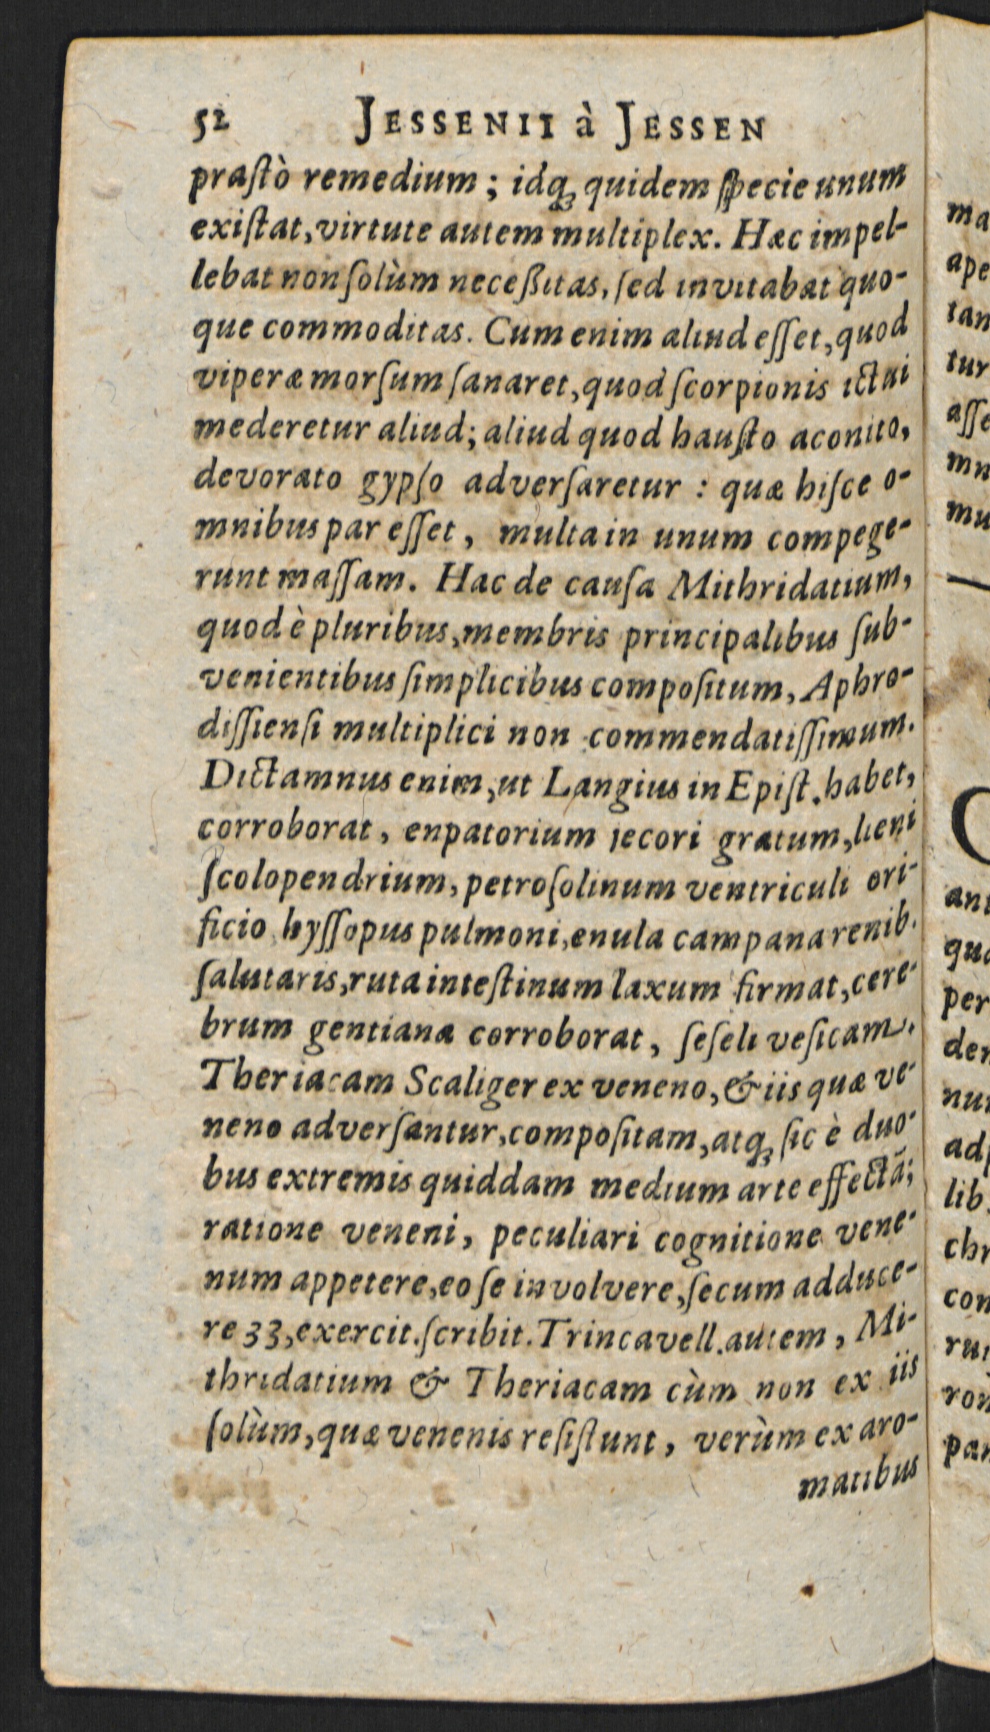 52 JESSENII à JESSEN
praſtò remedium ; idq́ quidem ſpecie unum
exiſtat, virtute autem multiplex. Hæc impel-
lebat non ſolùm neceßitas, ſed invitabat quo-
que commoditas. Cum enim aliud eſſet, quod
viperæ morſum ſanaret, quod ſcorpionis ictui
mederetur aliud; aliud quod hauſto aconito,
devorato gypſo adverſaretur : quæ hiſce o-
mnibus par eſſet, multa in unum compege-
runt maſſam. Hac de cauſa Mithridatium,
quod è pluribus, membris principalibus ſub-
venientibus ſimplicibus compoſitum, Aphro-
diſſienſi multiplici non commendatiſſimum.
Dictamnus enim, ut Langius in Epiſt. habet,
corroborat, enpatorium jecori gratum, lieni
ſcolopendrium, petroſolinum ventriculi ori-
ficio hyſſopus pulmoni, enula campana renib.
ſalutaris, ruta inteſtinum laxum firmat, cere-
brum gentiana corroborat, ſeſeli veſicam.
Theriacam Scaliger ex veneno, & iis quæ ve-
neno adverſantur, compoſitam, atq́ ſic è duo-
bus extremis quiddam medium arte effectā;
ratione veneni, peculiari cognitione vene-
num appetere, eo ſe involvere, ſecum adduce-
re 33, exercit. ſcribit. Trincavell. autem, Mi-
thridatium & Theriacam cùm non ex iis
ſolùm, quæ venenis reſiſtunt, verùm ex aro-
matibus
ma
ape
tan
tur
aſſe
mn
mu
C
ant
qua
per
der
nun
adſ
lib.
chr
con
rur
ron
par